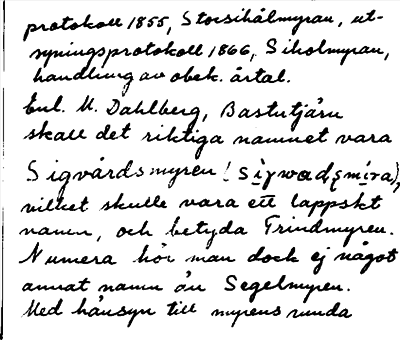 protokoll 1855, Storsihålmyran, ut-
syningsprotokoll 1866, Siholmyran,
handling av obek. årtal.
Enl. M. Dahlberg, Bastutjärn
skall det riktiga namnet vara
Sigvårdsmyren
vilket skulle vara ett lappskt
namn, och betyda Trindmyren.
Numera hör man dock ej något
annat namn än Segelmyren.
Med hänsyn till myrens runda